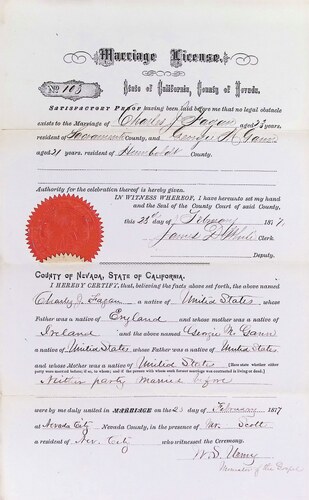 Marriage License.
No. 103
State of California, County of Nevada.
SATISFACTORY PROOF having been laid before me that no legal obstacle
exists to the Marriage of Charles J. Fagan aged 25 years,
resident of Sacramento County, and Georgie N. Gann
aged 21 years, resident of Humboldt County.
Authority for the celebration thereof is hereby given.
IN WITNESS WHEREOF, I have hereunto set my hand
and the Seal of the County Court of said County,
this day of 1877
James D. White Clerk
Deputy.
COUNTY OF NEVADA, STATE OF CALIFORNIA.
I HEREBY CERTIFY, that, believing the facts above set forth, the above named
Charles J. Fagan a native of United States whose
Father was a native of England and whose mother was a native of
Ireland and the above named Georgie N. Gann
a native of United States whose Father was a native of United States
and whose Mother was a native of United States
Neither party married before
were by me duly united in MARRIAGE on the day of February 1877
at Nevada City Nevada County, in the presence of Scott
a resident of Nev. City who witnessed the Ceremony.
Minister of the Gospel